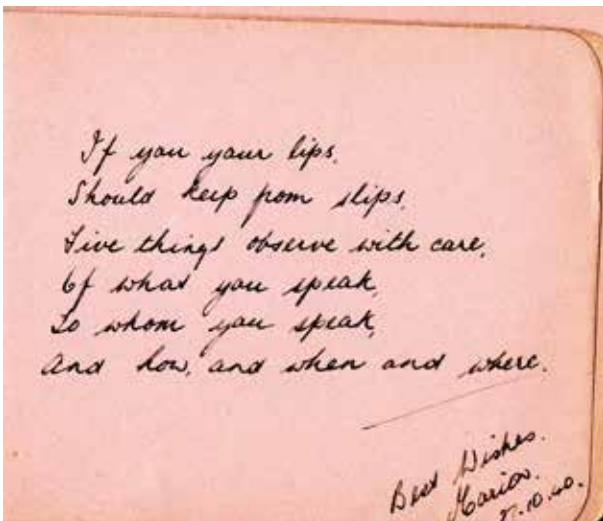 If you your lips,
Should keep from slips,
Five things observe with care,
Of what you speak,
To whom you speak,
And how, and when and where.
Best Wishes.
Marion.
.10.40.